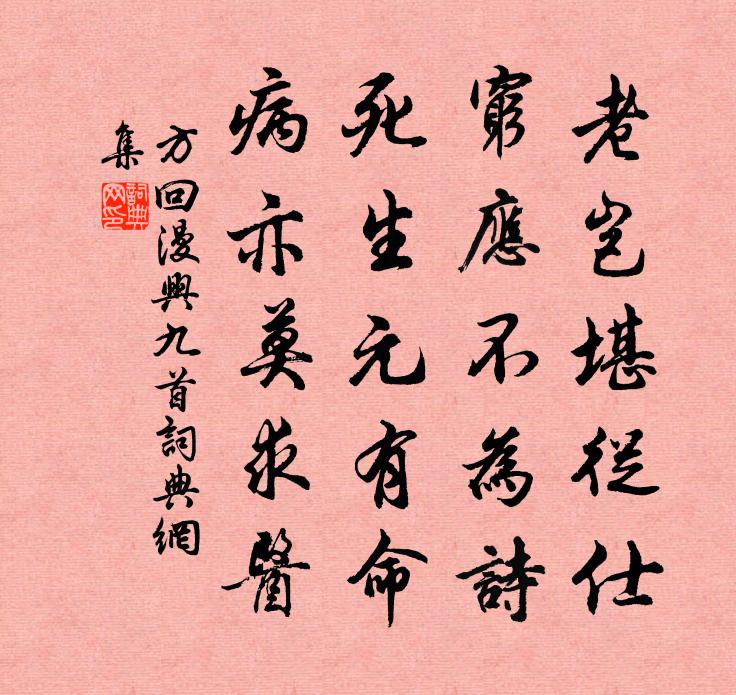 老豈堪從仕
窮應不為詩
死生元有命
病亦莫求醫
方回漫興九首詞典網
集
詞典
网印